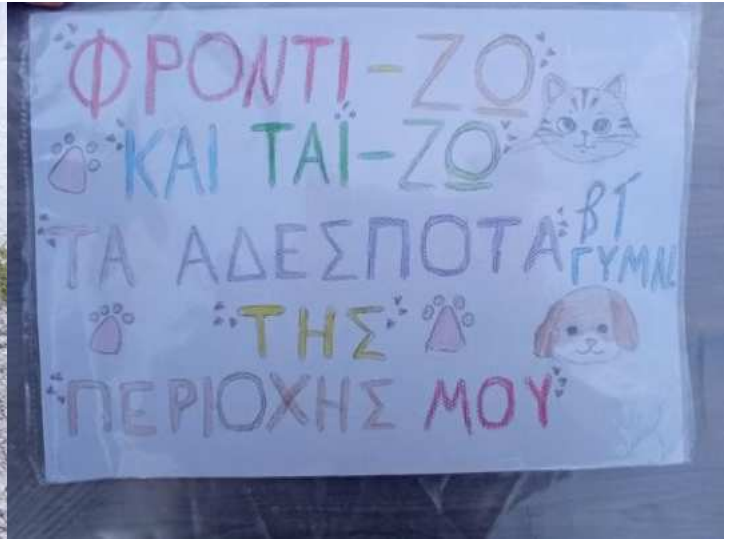 ΦΡΟΝΤΙ-ΖΩ
ΚΑΙ ΤΑΪ-ΖΩ
ΤΑ ΑΔΕΣΠΟΤΑ
ΒΤ
ΓΥΜΝ
ΤΗΣ
ΠΕΡΙΟΧΗΣ ΜΟΥ